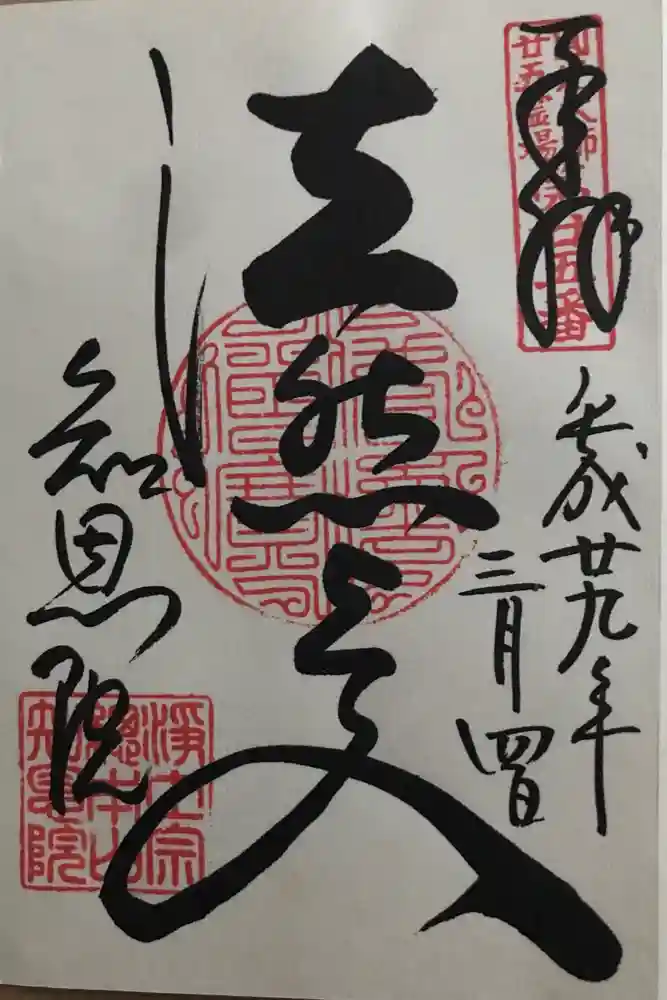 奉拝
大師
廿五霊場
第廿五番
平成廿九年
三月四日
法然上人
知恩院
淨土宗
總本山
知恩院